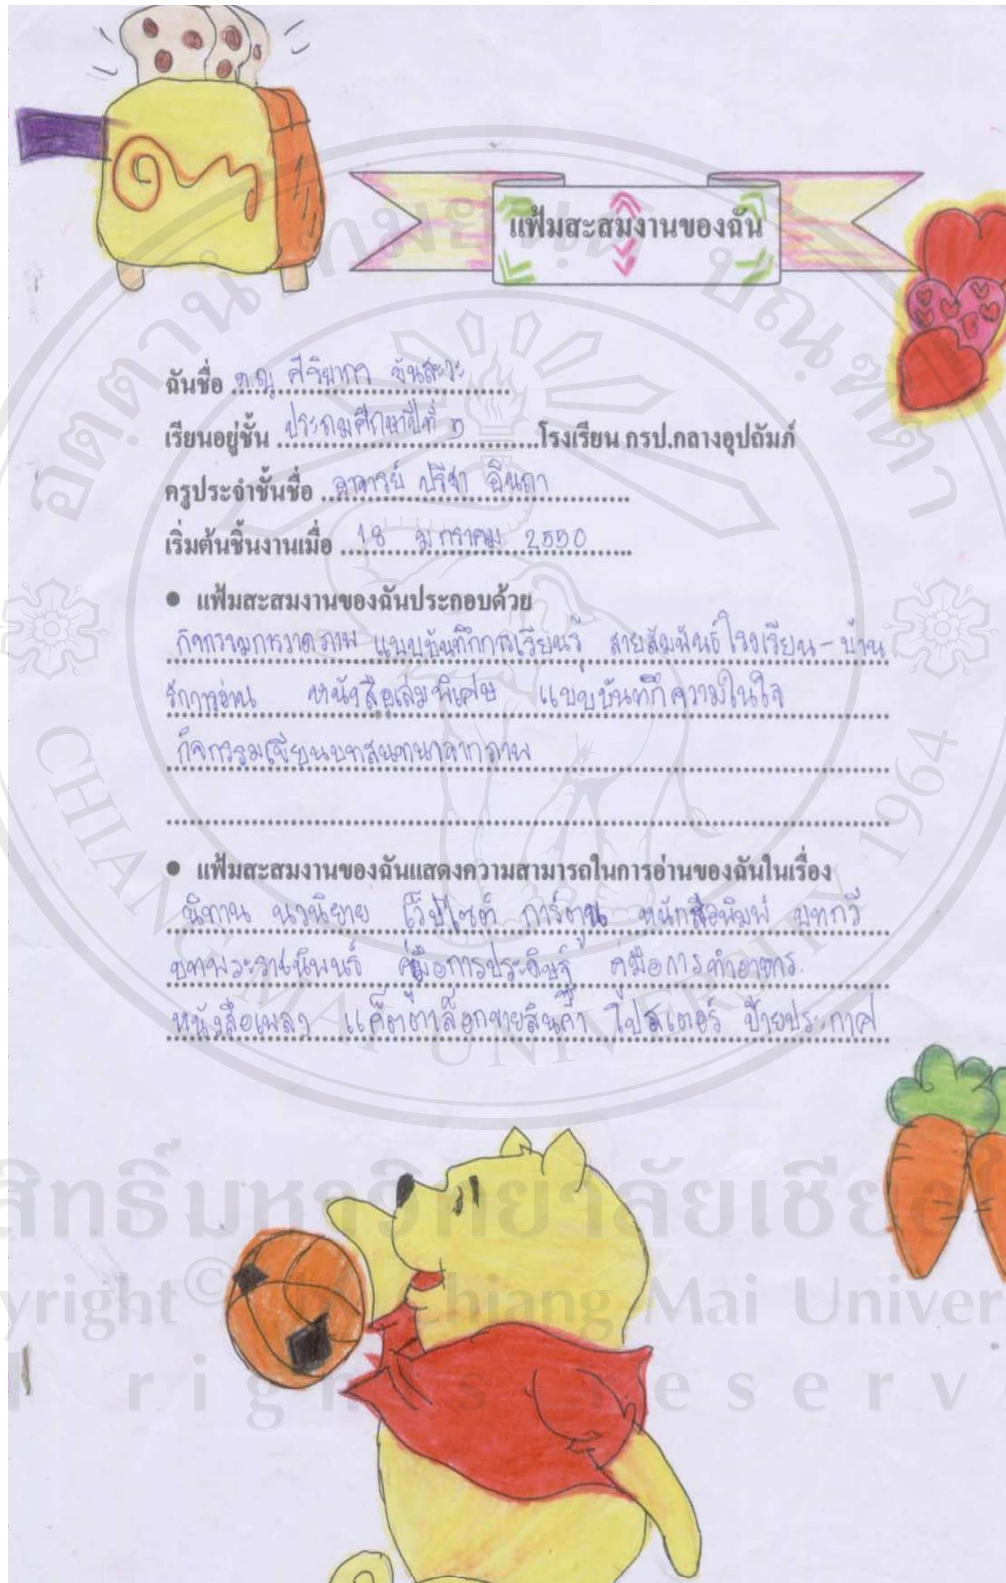 แฟ้มสะสมงานของฉัน
ฉันชื่อ ด.ญ ศิริยากร ขันสะวะ
เรียนอยู่ชั้น ประถมศึกษาปีที่ ๖ โรงเรียน กรป.กลางอุปถัมภ์
ครูประจำชั้นชื่อ อาจารย์ ปรีชา อินถา
เริ่มต้นชิ้นงานเมื่อ 18 มกราคม 2550
● แฟ้มสะสมงานของฉันประกอบด้วย
กิจกรรมการวาดภาพ แบบบันทึกการเรียนรู้ สายสัมพันธ์โรงเรียน-บ้าน
รักการอ่าน หนังสือเล่มพิเศษ แบบบันทึกความในใจ
กิจกรรมเขียนบทสนทนาจากภาพ
● แฟ้มสะสมงานของฉันแสดงความสามารถในการอ่านของฉันในเรื่อง
นิทาน นวนิยาย เว็ปไซต์ การ์ตูน หนังสือพิมพ์ บทกวี
บทพระราชนิพนธ์ คู่มือการประดิษฐ์ คู่มือการทำอาหาร
หนังสือเพลง แค็ตตาล็อกขายสินค้า โปสเตอร์ ป้ายประกาศ
CHIANG MAI UNIVERSITY 1964